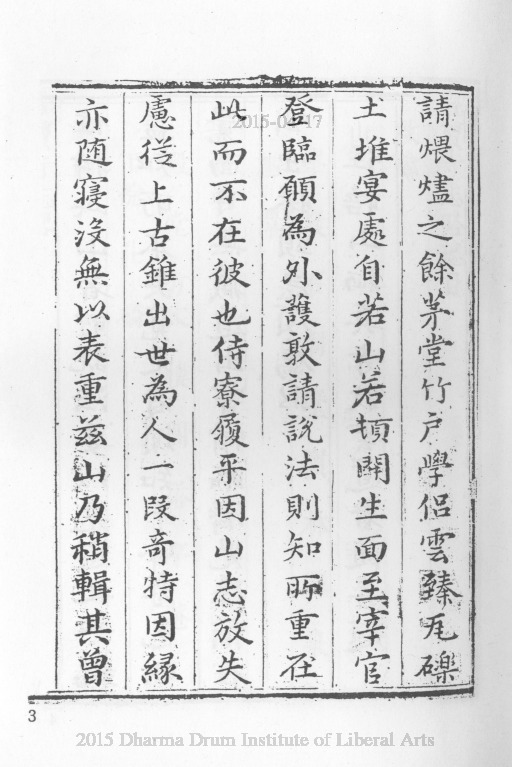 請煨燼之餘茅堂竹户學侶雲臻瓦礫
土堆宴處自若山若頓開生面至宰官
登臨願為外護敦請説法則知所重在
此而不在彼也侍寮履平因山志放失
慮從上古錐出世為人一段竒特因緣
亦随寢没無以表重兹山乃稍輯其曾
3
2015-04-17
2015 Dharma Drum Institute of Liberal Arts